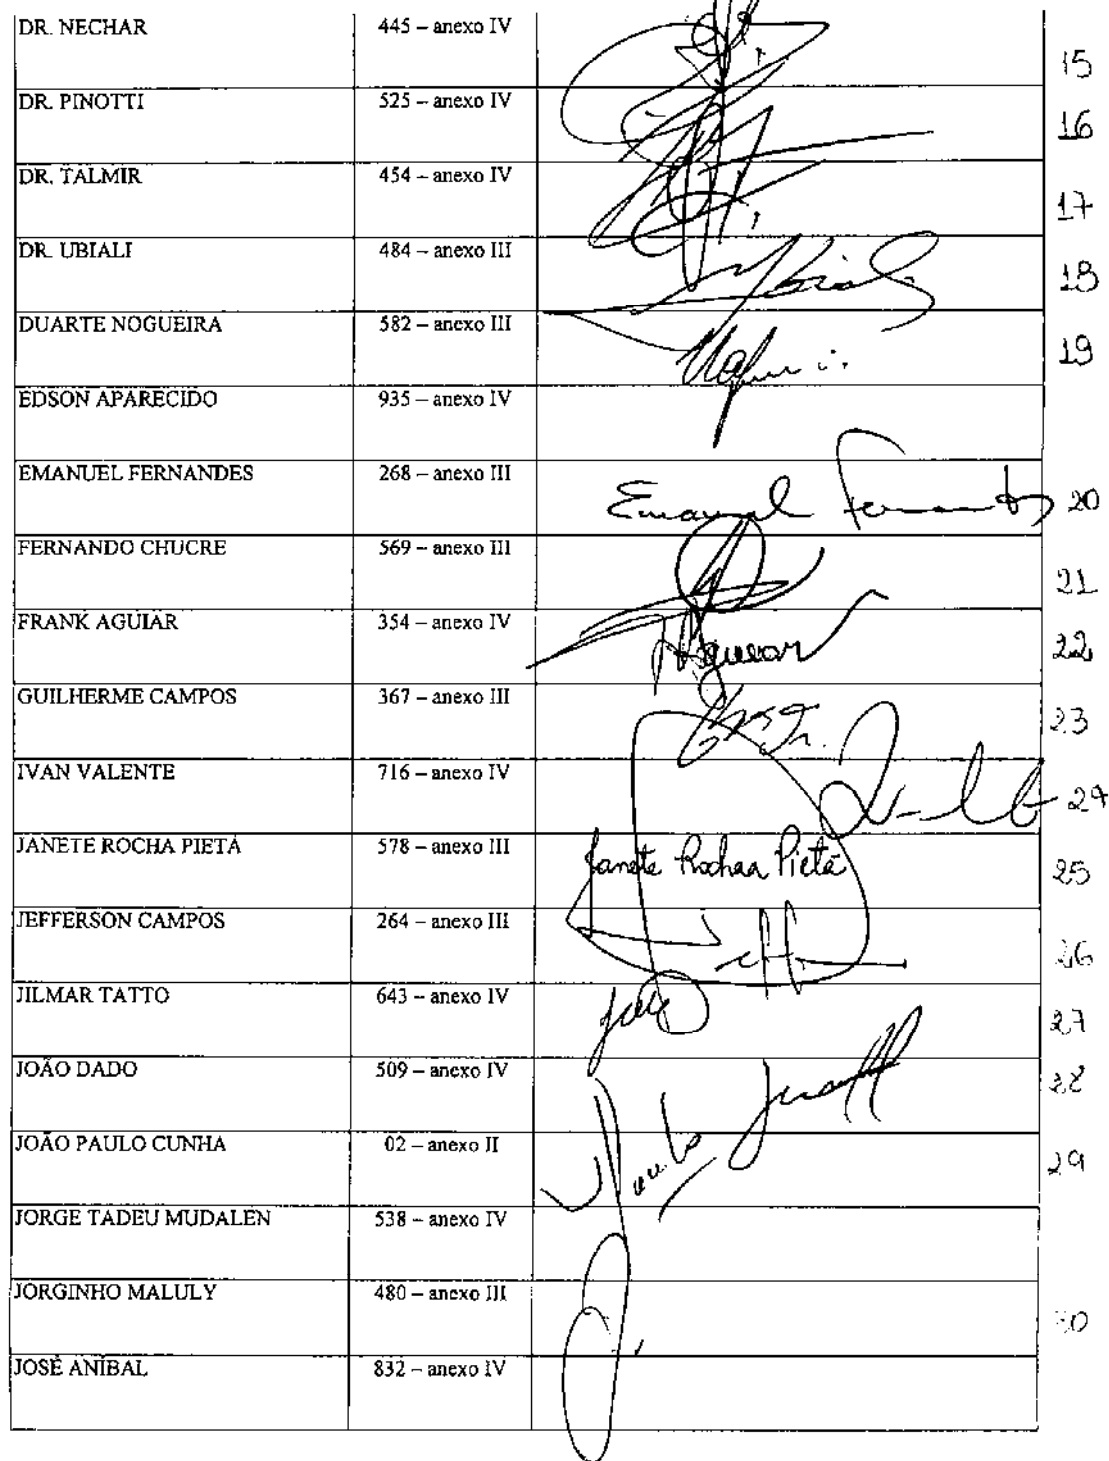 DR. NECHAR 445 – anexo IV 15
DR. PINOTTI 525 – anexo IV 16
DR. TALMIR 454 – anexo IV 17
DR. UBIALI 484 – anexo III 18
DUARTE NOGUEIRA 582 – anexo III 19
EDSON APARECIDO 935 – anexo IV
EMANUEL FERNANDES 268 – anexo III Emanuel Fernandes 20
FERNANDO CHUCRE 569 – anexo III 21
FRANK AGUIAR 354 – anexo IV Aguiar 22
GUILHERME CAMPOS 367 – anexo III 23
IVAN VALENTE 716 – anexo IV 24
JANETE ROCHA PIETÁ 578 – anexo III Janete Rocha Pietá 25
JEFFERSON CAMPOS 264 – anexo III 26
JILMAR TATTO 643 – anexo IV 27
JOÃO DADO 509 – anexo IV 28
JOÃO PAULO CUNHA 02 – anexo II 29
JORGE TADEU MUDALEN 538 – anexo IV
JORGINHO MALULY 480 – anexo III 30
JOSÉ ANÍBAL 832 – anexo IV